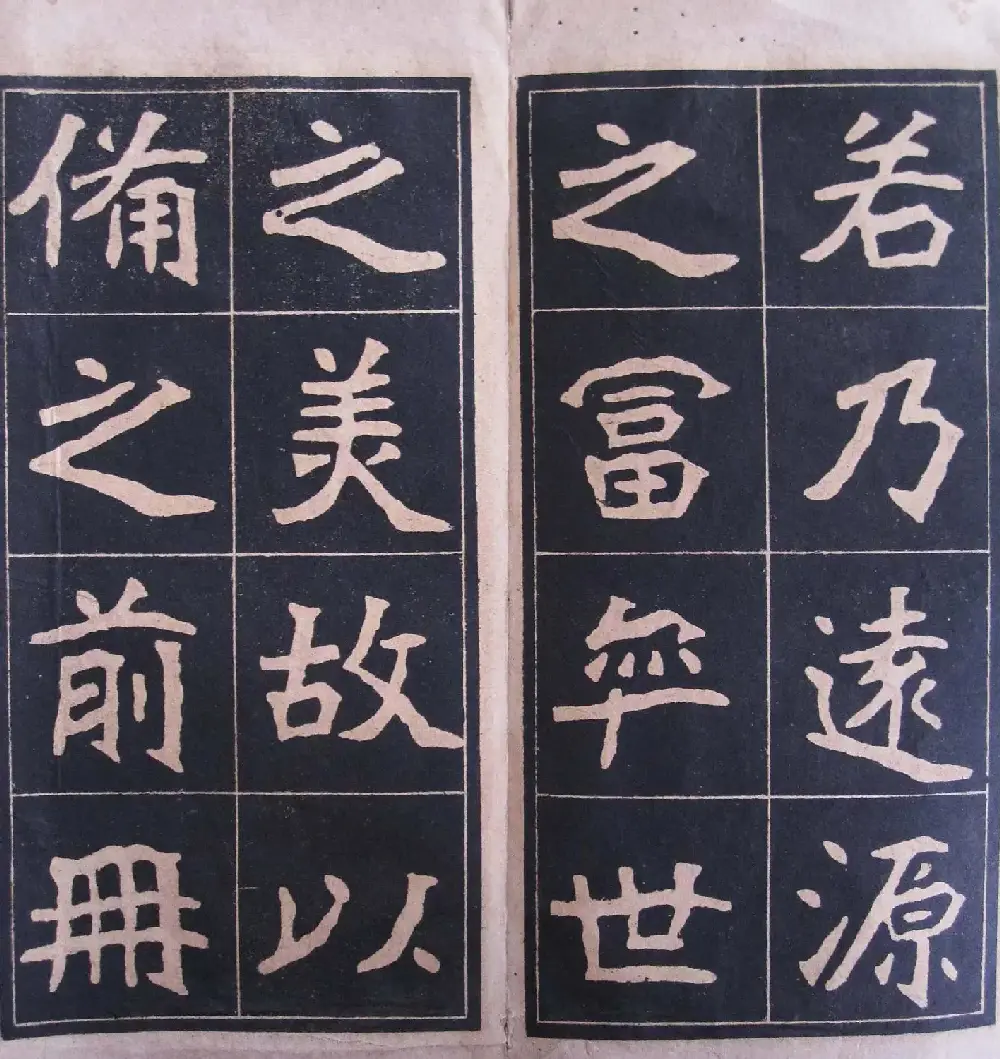 若乃遠源
之富奕世
之美故以
備之前冊